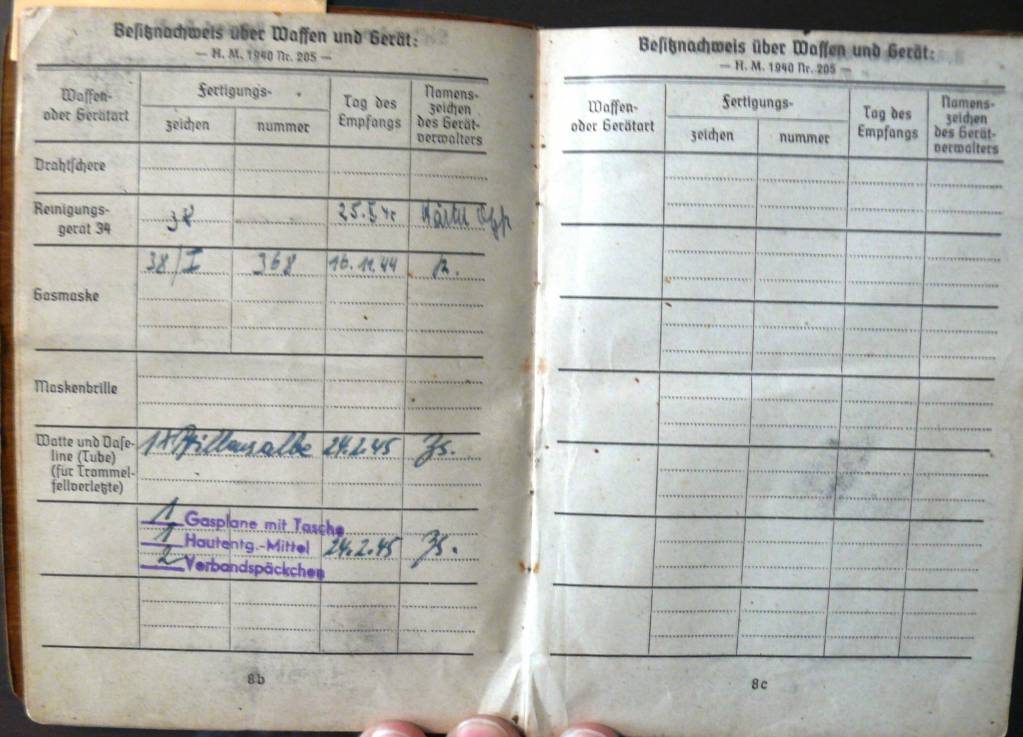 Besitznachweis über Waffen und Gerät:
— H. M. 1940 Nr. 205 —
Waffen- oder Gerätart
Fertigungs-
zeichen
nummer
Tag des Empfangs
Namens-zeichen des Gerät-verwalters
Drahtschere
Reinigungs-
gerät 34
38/I 368 16.11.44
Gasmaske
Maskenbrille
Watte und Vase-
line (Tube)
(für Trommel-
fellverletzte)
24.2.45
1 Gasplane mit Tasche
1 Hautentg.-Mittel 24.2.45
2 Verbandspäckchen
8b
Besitznachweis über Waffen und Gerät:
— H. M. 1940 Nr. 205 —
Waffen- oder Gerätart
Fertigungs-
zeichen
nummer
Tag des Empfangs
Namens-zeichen des Gerät-verwalters
8c